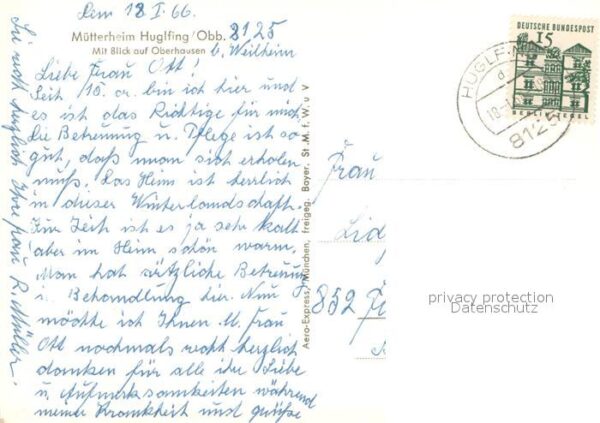 Den 18 I. 66.
Mütterheim Huglfing/Obb. 8125
Mit Blick auf Oberhausen b. Weilheim
Liebe Frau Ott!
Seit 15. cr. bin ich hier und
es ist das Richtige für mich
die Betreuung u. Pflege ist so
gut, daß man sich erholen
muß. Das Heim ist herrlich
in dieser Winterlandschaft.
Zur Zeit ist es ja sehr kalt
aber im Heim schön warm.
Man hat ärztliche Betreuung
u. Behandlung hier. Nun
möchte ich Ihnen lb. Frau
Ott nochmals recht herzlich
danken für alle ihr Liebe
u. Aufmerksamkeiten während
meiner Krankheit und grüße
Sie recht herzlich Ihre Frau R. Müller.
Aero-Express, München, Freigeg. Bayer. St. M. f. W. u V
DEUTSCHE BUNDESPOST
15
BERLIN-TEGEL
HUGLFIN
d
18-1
8125
Frau
Lid
852
privacy protection
Datenschutz